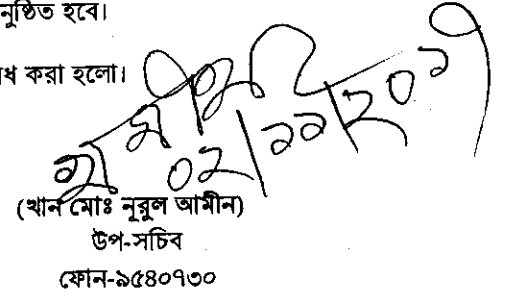 নুষ্ঠিত হবে।
ধ করা হলো।
০২/১১/২০১
(খান মোঃ নূরুল আমীন)
উপ-সচিব
ফোন-৯৫৪০৭৩০